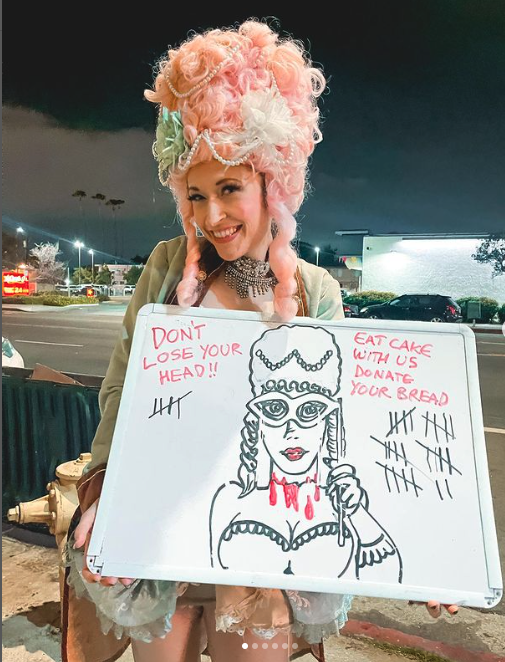 DON'T
LOSE YOUR
HEAD!!
EAT CAKE
WITH US
DONATE
YOUR BREAD